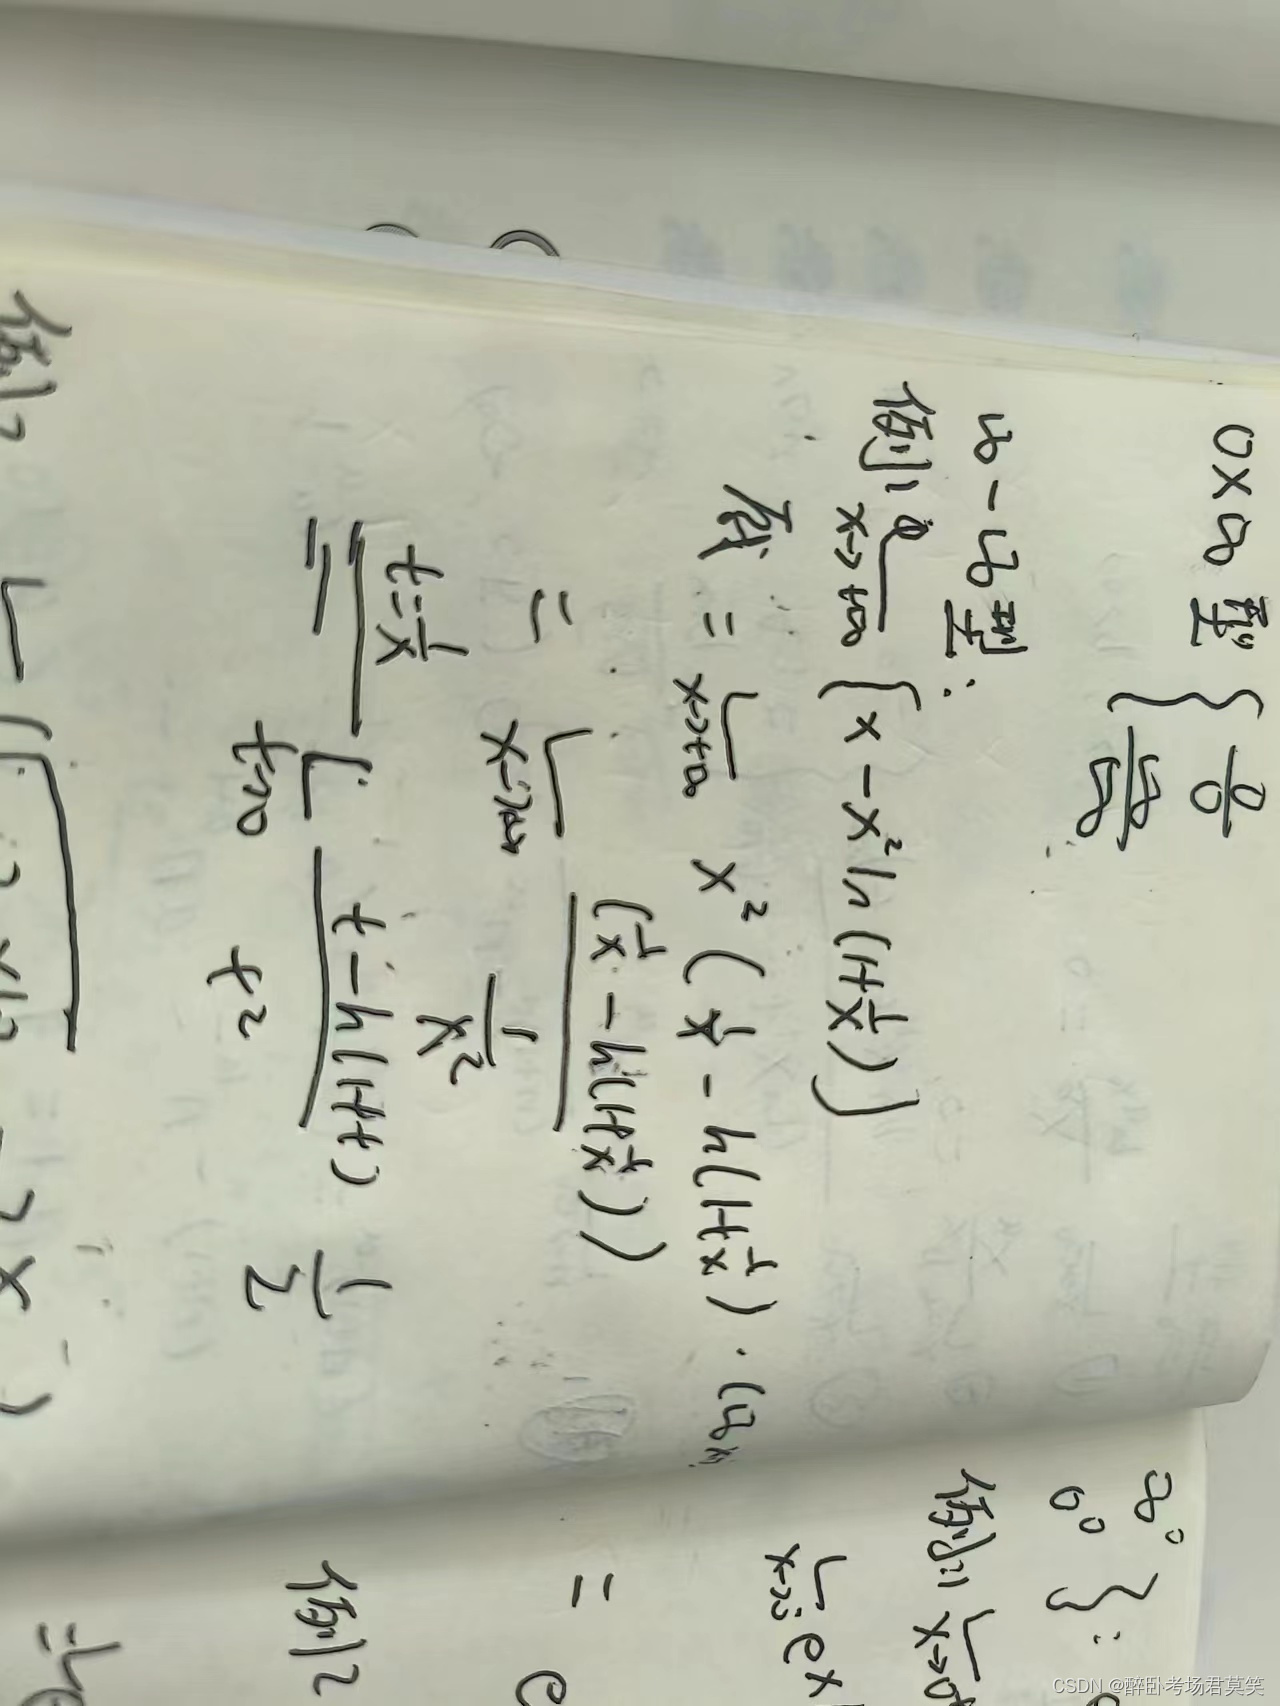 0×∞型 { 0/0
∞/∞
∞-∞型:
例1. L x→+∞ [x-x²ln(1+1/x)]
原 = L x→+∞ x²(1/x-ln(1+1/x)).(∞×
= L x→+∞ (1/x-ln(1+1/x)) / 1/x²
t=1/x
= L t→0 t-ln(1+t) / t² 1/2
例2
∞⁰
0⁰ } :
例1: L x→0+
L x→ e x
= e
例2
=
CSDN @醉卧考场君莫笑